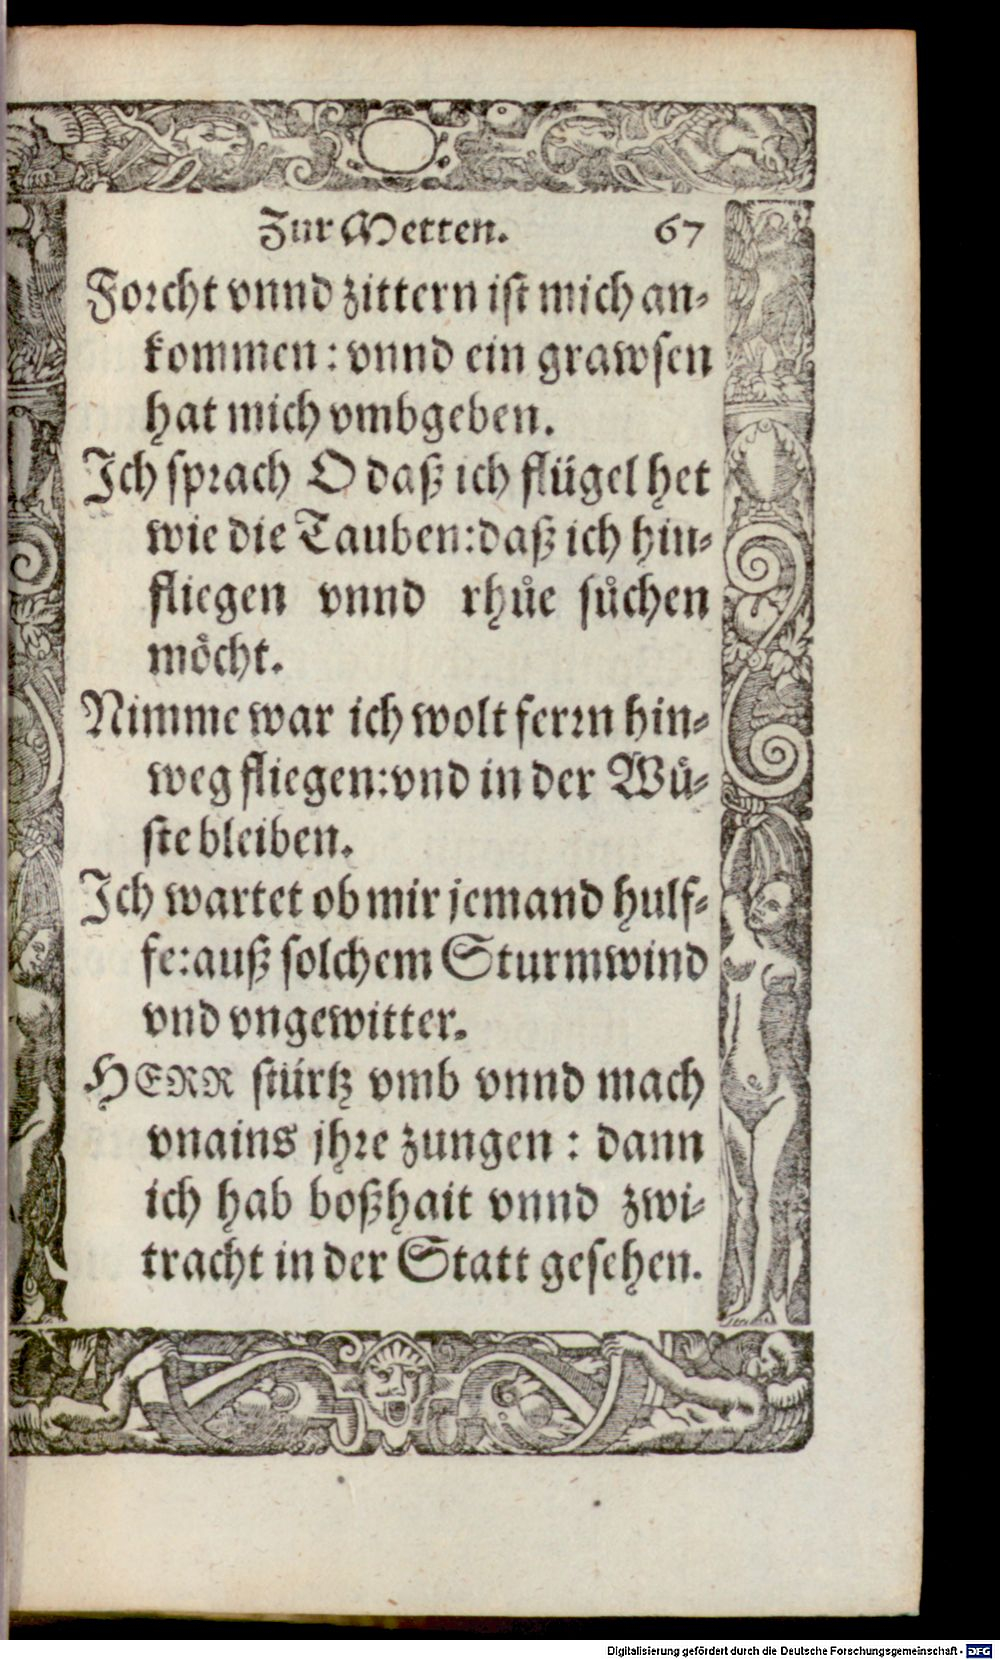 Zur Metten. 67
Forcht vnnd zittern ist mich an-
kommen: vnnd ein grawsen
hat mich vmbgeben.
Ich sprach O daß ich flügel het
wie die Tauben: daß ich hin-
fliegen vnnd rhůe sůchen
möcht.
Nimme war ich wolt ferrn hin-
weg fliegen: vnd in der Wü-
ste bleiben.
Ich wartet ob mir jemand hulf-
fe: auß solchem Sturmwind
vnd vngewitter.
HERR stürtz vmb vnnd mach
vnains jhre zungen: dann
ich hab boßhait vnnd zwi-
tracht in der Statt gesehen.
Digitalisierung gefördert durch die Deutsche Forschungsgemeinschaft - DFG